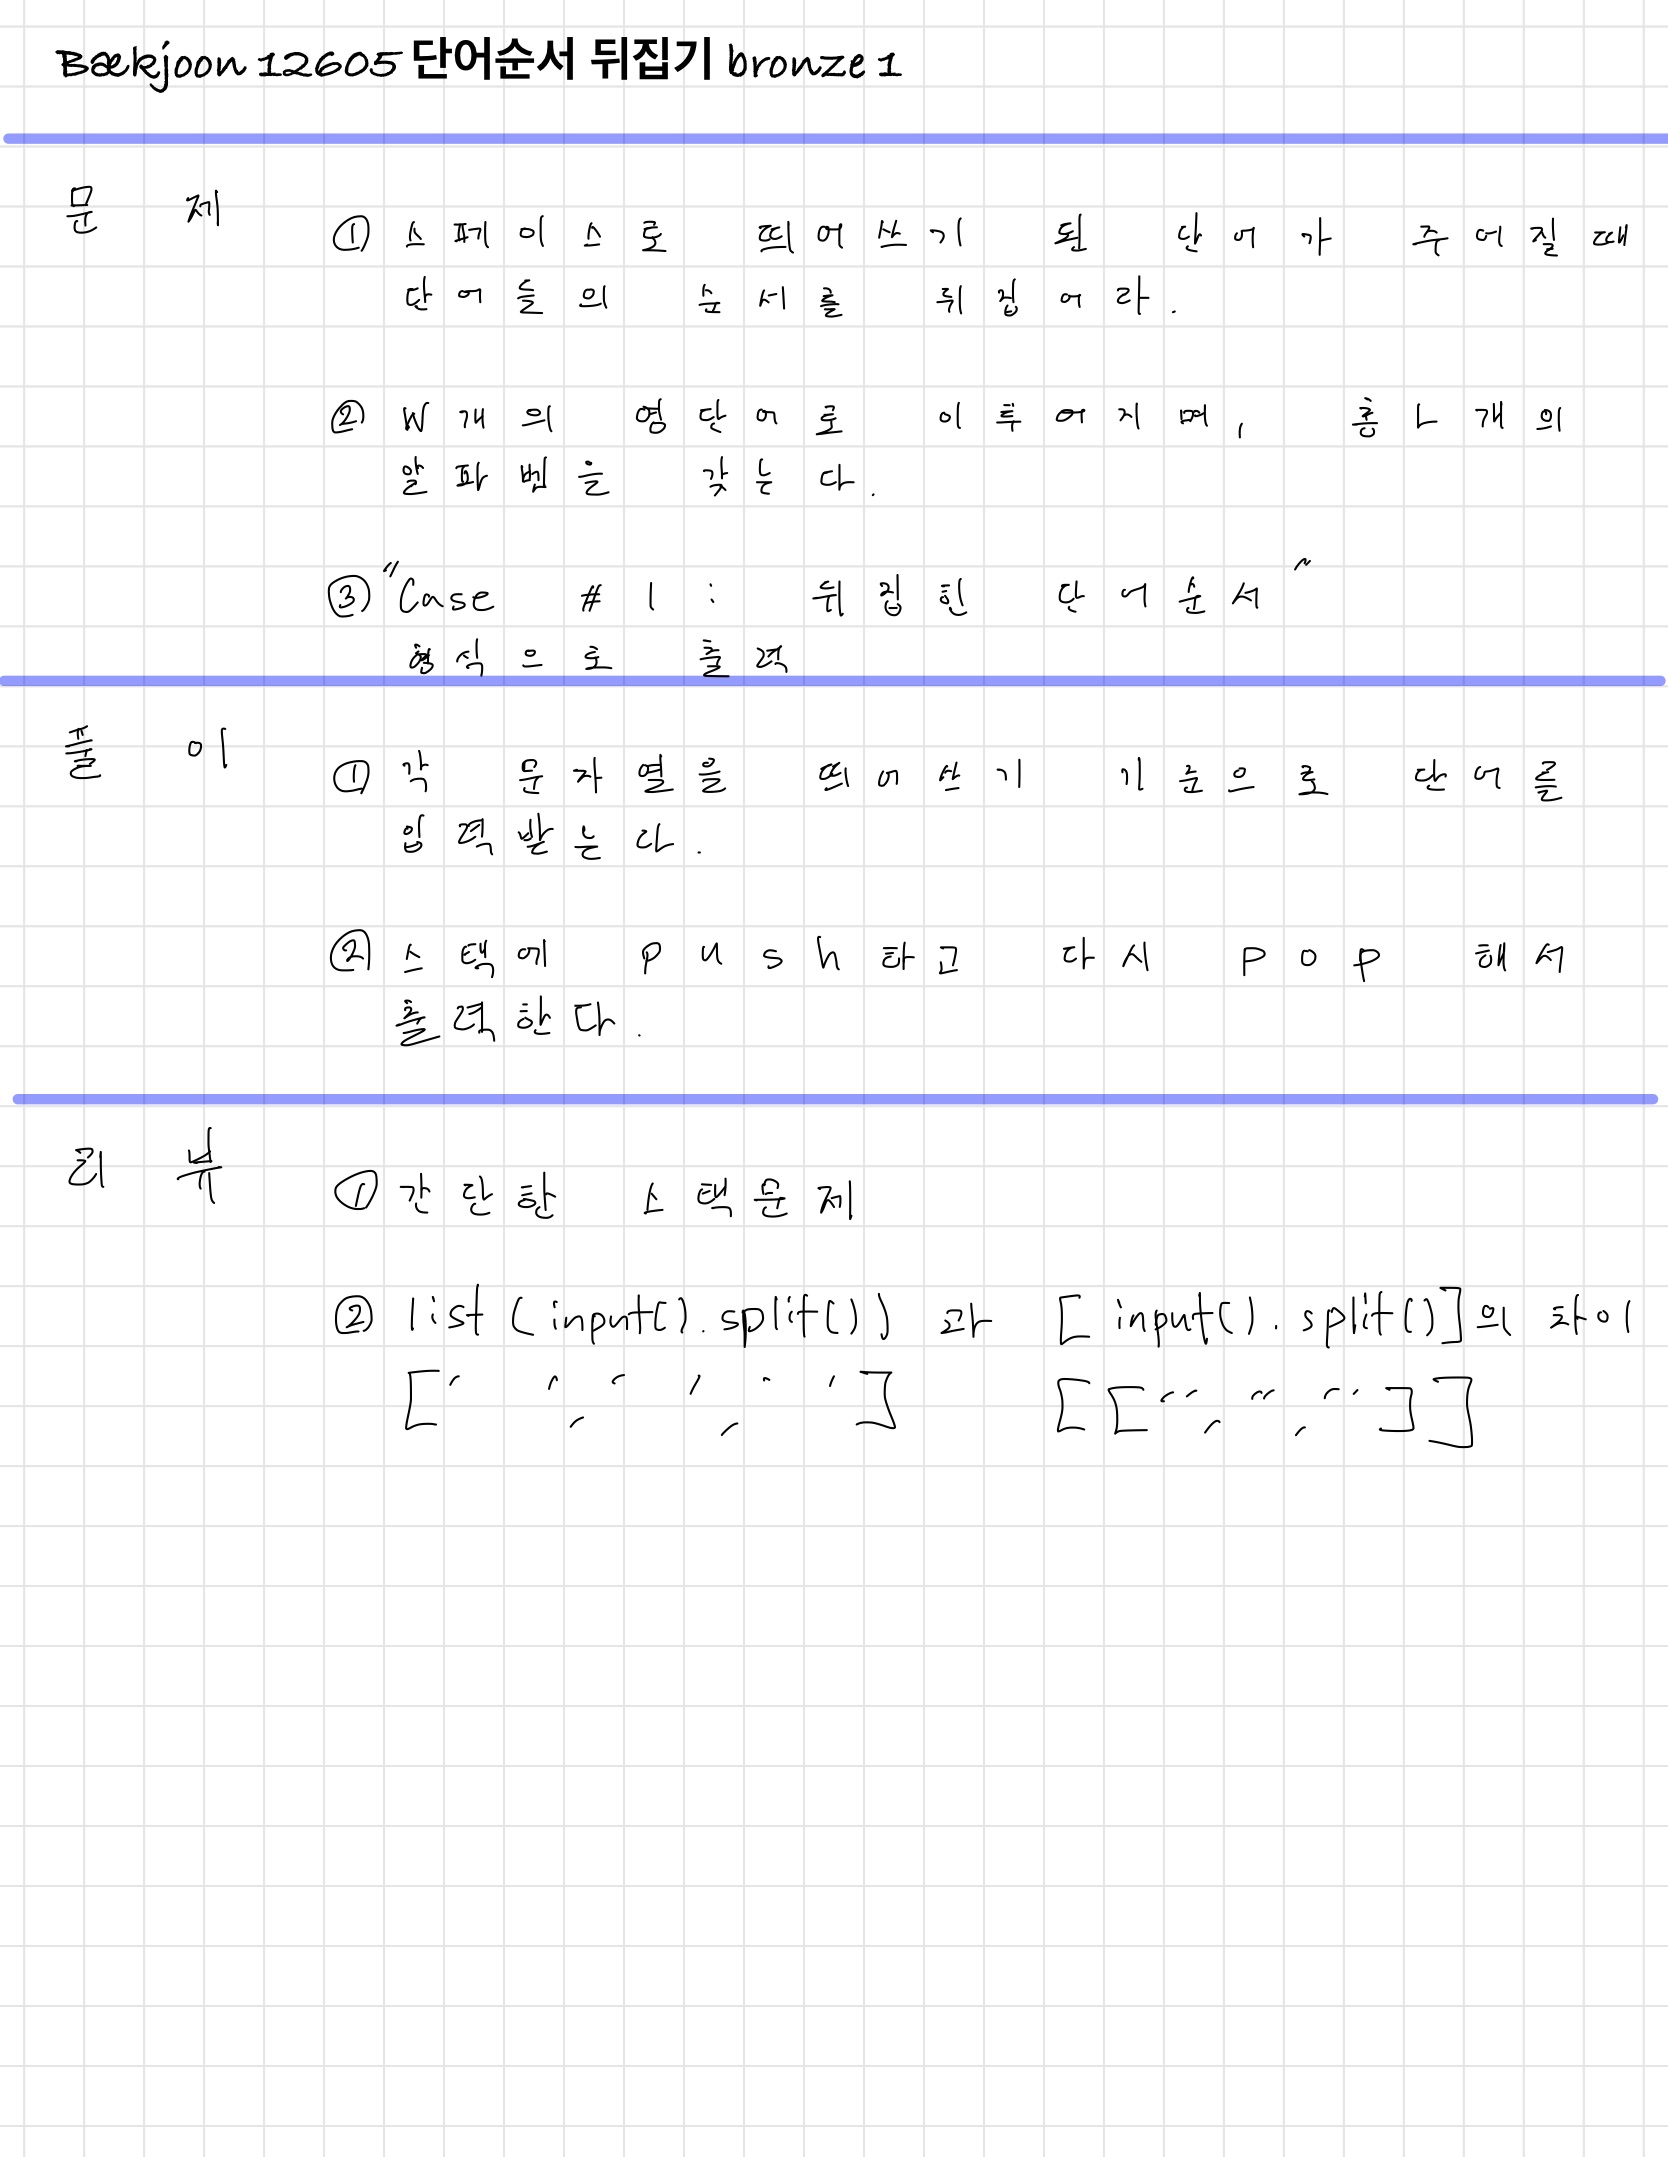 Baekjoon 12605 단어순서 뒤집기 bronze 1
문제
① 스페이스로 띄어쓰기 된 단어가 주어질때
단어들의 순서를 뒤집어라.
② W개의 영단어로 이루어지며, 총 L개의
알파벳을 갖는다.
③ "Case #1: 뒤집힌 단어순서"
형식으로 출력
풀이
① 각 문자열을 띄어쓰기 기준으로 단어를
입력받는다.
② 스택에 push하고 다시 pop 해서
출력한다.
리뷰
① 간단한 스택문제
② list(input().split()) 과 [input().split()]의 차이
[' ',' ',' '] [['','','']]